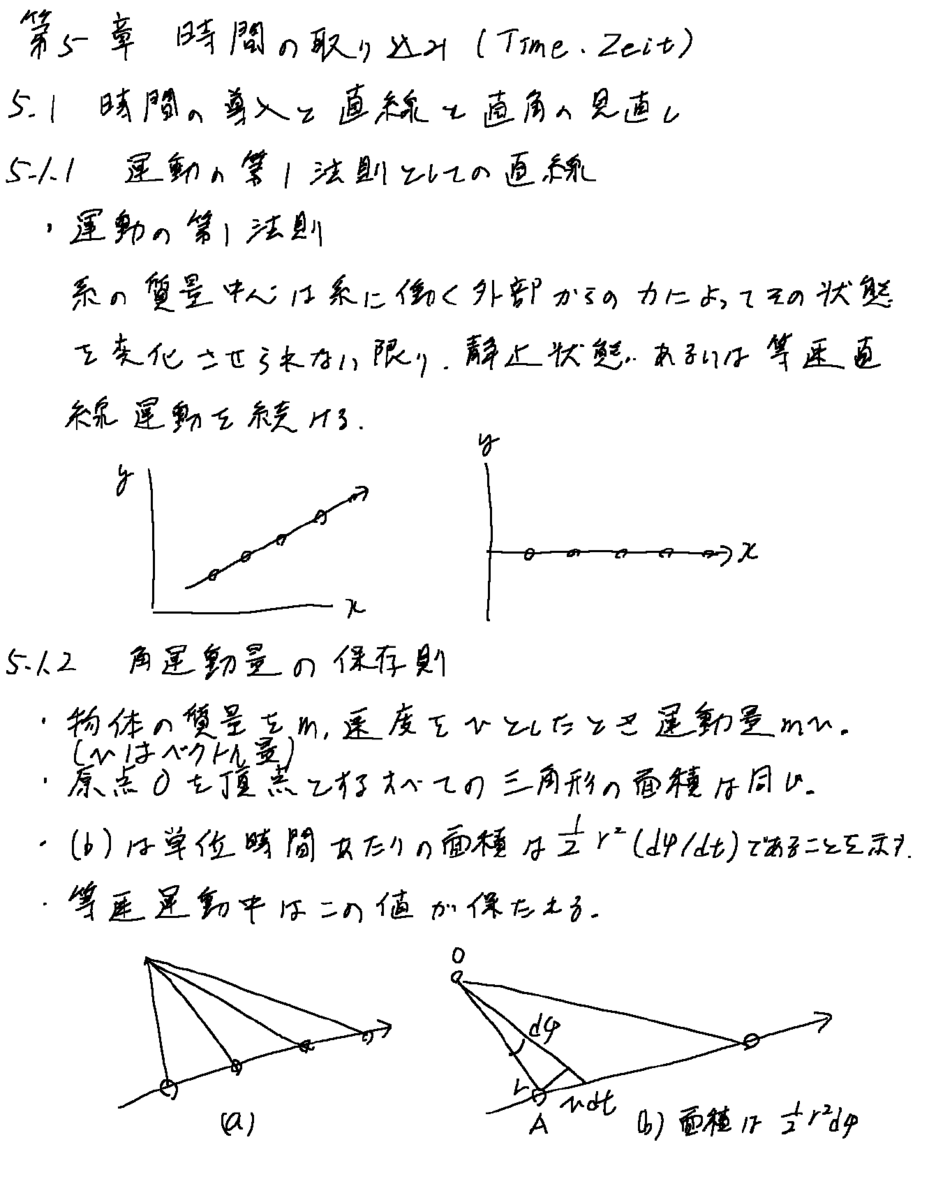 第5章 時間の取り込み (Time. Zeit)
5.1 時間の導入と直線と直角の見直し
5.1.1 運動の第1法則としての直線
・運動の第1法則
系の質量中心は系に働く外部からの力によってその状態
を変化させられない限り、静止状態、あるいは等速直
線運動を続ける.
y
x
y
x
5.1.2 角運動量の保存則
・物体の質量をm, 速度をvとしたとき運動量mv.
(vはベクトル量)
・原点Oを頂点とするすべての三角形の面積は同じ.
・(b)は単位時間あたりの面積は 1/2 r² (dφ/dt)であることを示す.
・等速運動中はこの値が保たれる.
(a)
O
dφ
r
vdt
A
(b) 面積は 1/2 r²dφ